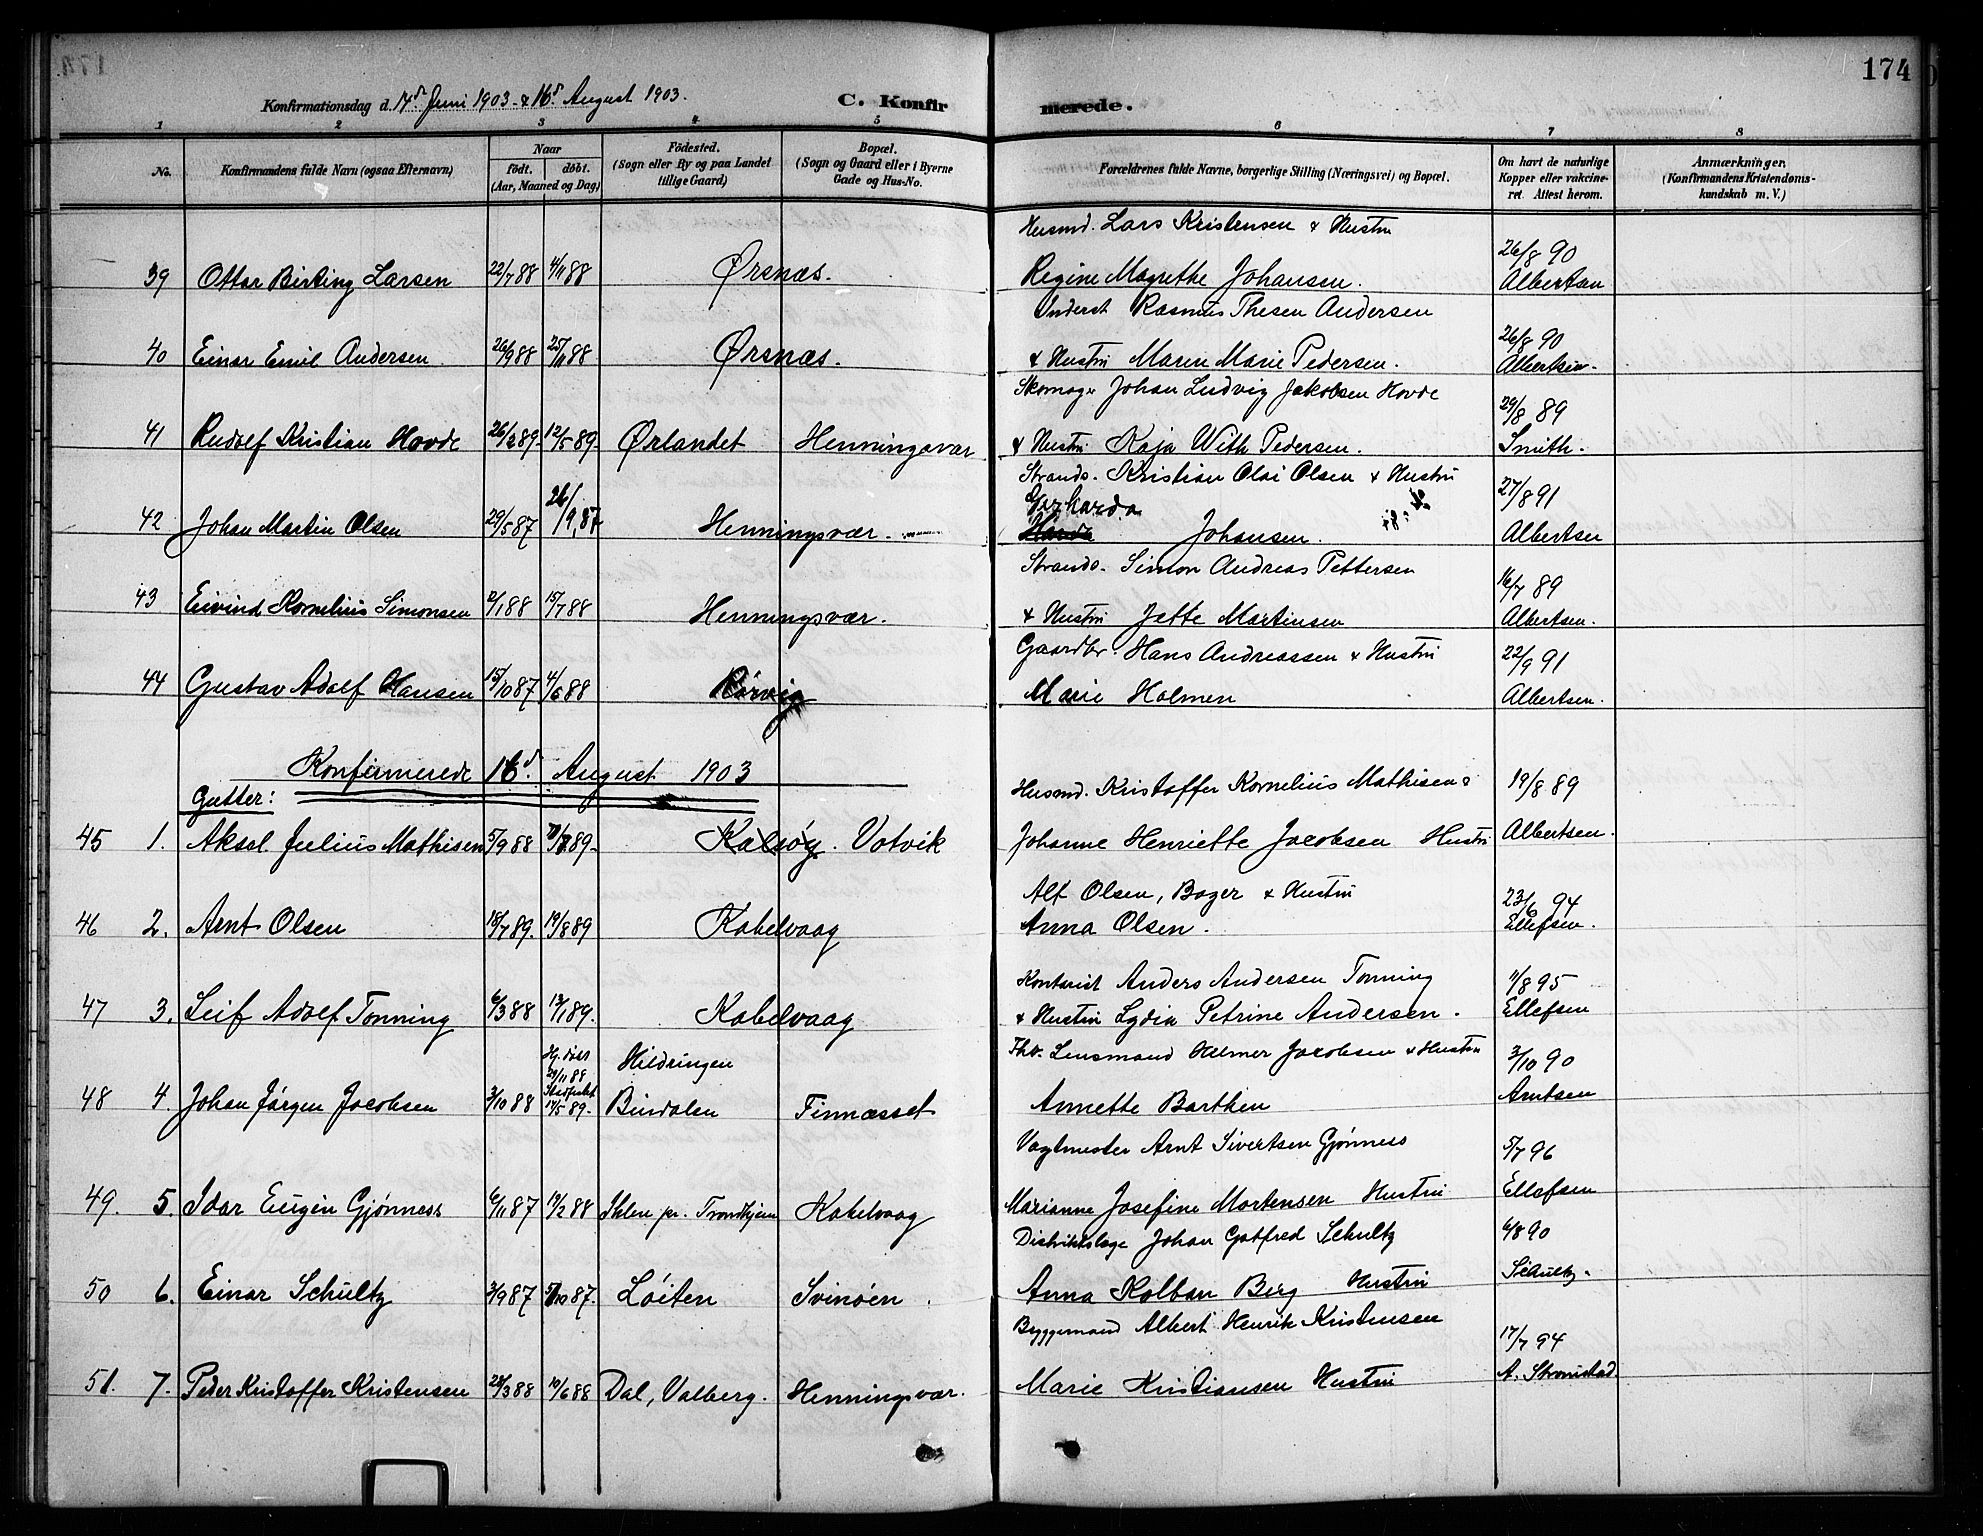 174
Konfirmationsdag d. 14d Juni 1903 & 16d August 1903. C. Konfirmerede.
1 2 3 4 5 6 7 8
No. Konfirmandens fulde Navn (ogsaa Efternavn) Naar født. døbt. (Aar, Maaned og Dag) Fødested. (Sogn eller By og paa Landet tillige Gaard) Bopæl. (Sogn og Gaard eller i Byerne Gade og Hus-No. Forældrenes fulde Navne, borgerlige Stilling (Næringsvei) og Bopæl. Om havt de naturlige Kopper eller vakcineret. Attest herom. Anmærkninger. (Konfirmandens Kristendomskundskab m. V.)
Husmd. Lars Kristensen & Hustru
39 Ottar Birting Larsen 22/7 88 4/11 88 Ørsnæs. Regine Magrethe Johansen. 26/8 90 Albertsen
Inderst Rasmus Thesen Andersen
40 Einar Emil Andersen 26/9 88 25/11 88 Ørsnæs. & Hustru Maren Marie Pedersen. 26/8 90 Albertsen.
Skomager Johan Ludvig Jakobsen Hovde
41 Rudolf Kristian Hovde 26/2 89. 12/5 89. Ørlandet Henningsvær & Hustru Kaja With Pedersen. 29/8 89 Smith.
Strands. Kristian Olai Olsen & Hustru
Gerharda
42 Johan Martin Olsen 29/5 87 26/9, 87 Henningsvær. Johansen. 27/8 91 Albertsen
Strands. Simon Andreas Pettersen
43 Eivind Kornelius Simonsen 2/1 88 15/7 88 Henningsvær. & Hustru Jette Martinsen 16/7 89 Albertsen.
Gaardbr. Hans Andreassen & Hustru
44 Gustav Adolf Hansen 15/10 87 4/6 88 Rørvig Marie Holmen 22/9 91 Albertsen.
Konfirmerede 16d. August 1903
Gutter:
Husmd. Kristoffer Kornelius Mathisen & 19/8 89
45 1. Aksel Julius Mathisen 5/9 88 89. Kalsøy. Votvik Johanne Henriette Jacobsen Hustru Albertsen.
Alf Olsen, Bager & Hustru 23/6 94
46 2. Arnt Olsen 15/7 89. 19/8 89 Kabelvaag Anna Olsen. Ellefsen.
Kontorist Anders Andersen Tonning 11/8 95
47 3. Leif Adolf Tonning 6/3 88 13/1 89. Kabelvaag & Hustru Lydia Petrine Andersen. Ellefsen
Hj. døbt 29/11 88 Hildringen Lensmand Helmer Jacobsen & Hustru 3/10 90
48 4. Johan Jørgen Jacobsen 3/10 88 Stadfæstet 12/5 89. Bindalen Finnæsset Annette Barthen Arntsen
Vagtmester Arnt Sivertsen Gjønness 5/7 96
49. 5. Idar Eugen Gjønness 6/11 87 19/2 88 Ihlen pr. Trondhjem Kabelvaag Marianne Josefine Mortensen Hustru Ellefsen
Distriktslæge Johan Gotfred Schultz 6/8 90
50 6. Einar Schultz 3/9 87 /10 87. Løiten Svinøen. Anna Kolban Berg Hustru Schultz.
Byggemand Albert Henrik Kristensen 17/7 94
51. 7. Peder Kristoffer Kristensen 28/3 88 10/6 88 Dal, Valberg. Henningsvær. Marie Kristiansen Hustru A. Strømstad.